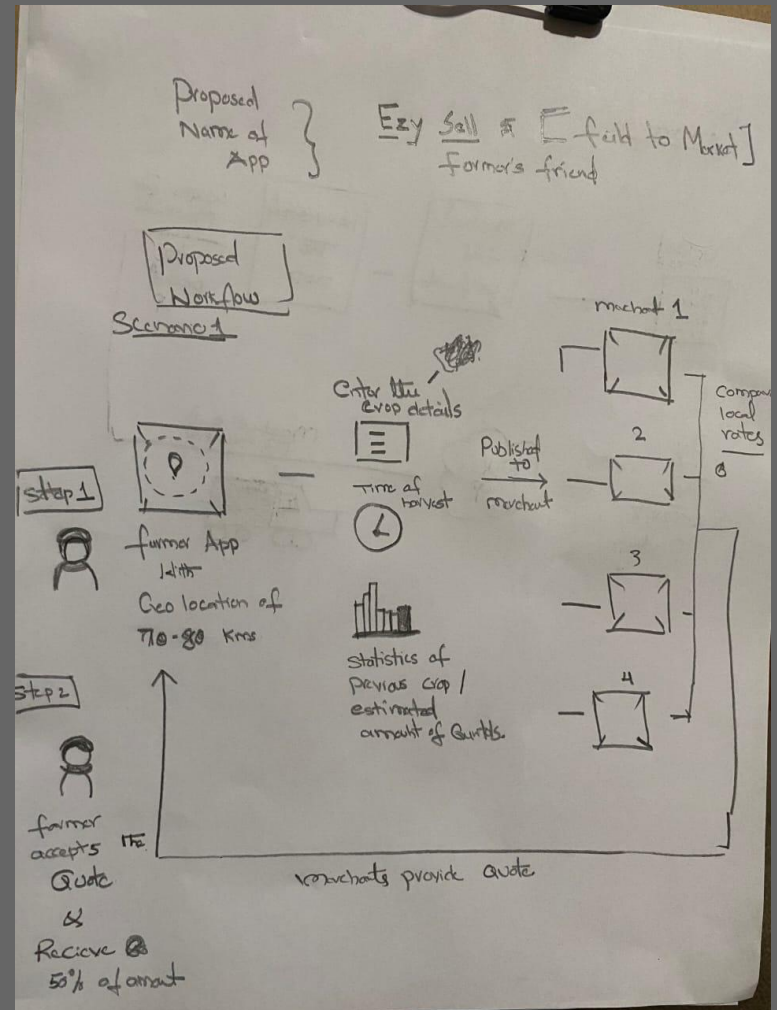 Proposed
Name of
App
Ezy Sell & [ field to Market ]
farmer's friend
Proposed
Workflow
Scenario 1
Step 1
farmer App
With
Geo location of
70-80 Kms
Enter the
crop details
Time of
harvest
Statistics of
previous crop /
estimated
amount of
Published
to
merchant
1
2
3
4
local
rates
Step 2
farmer
accepts the
Quote
&
Recieve
50% of amount
Merchants provide Quote